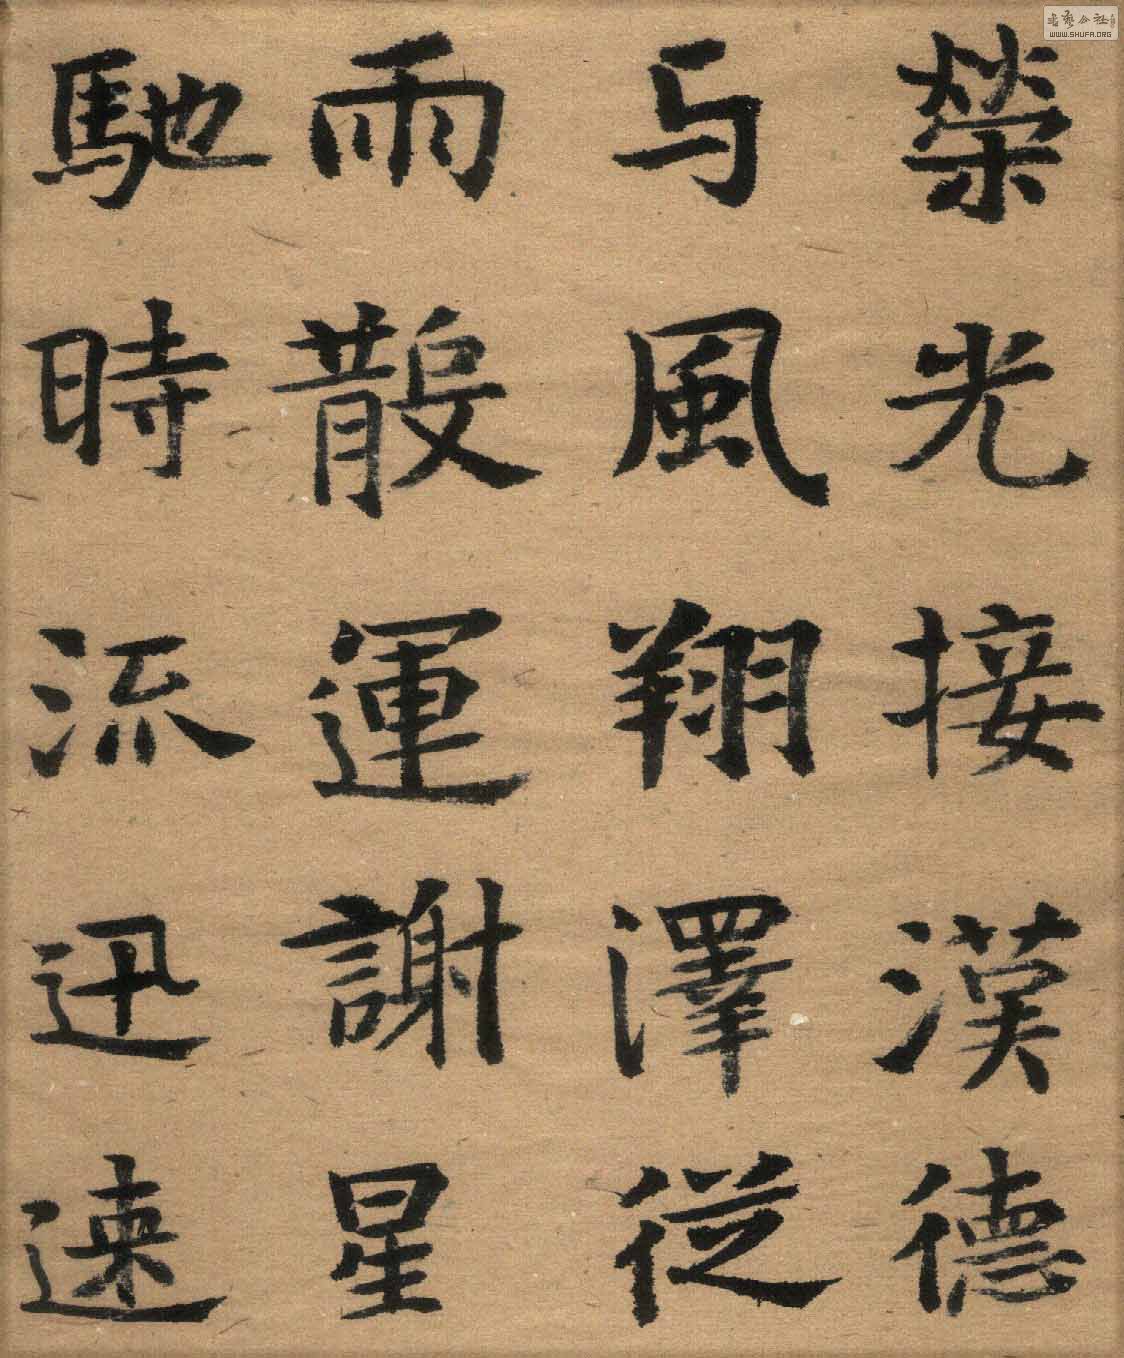 榮光接漢德
与風翔澤従
雨散運謝星
馳時流迅速
WWW.SHUFA.ORG